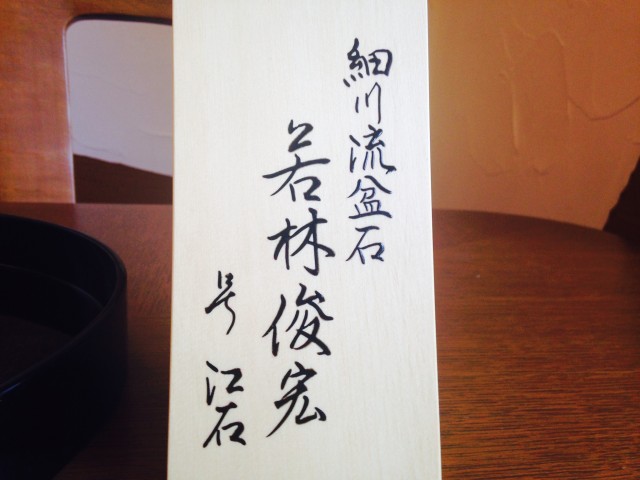 細川流盆石
若林俊宏
号 江石